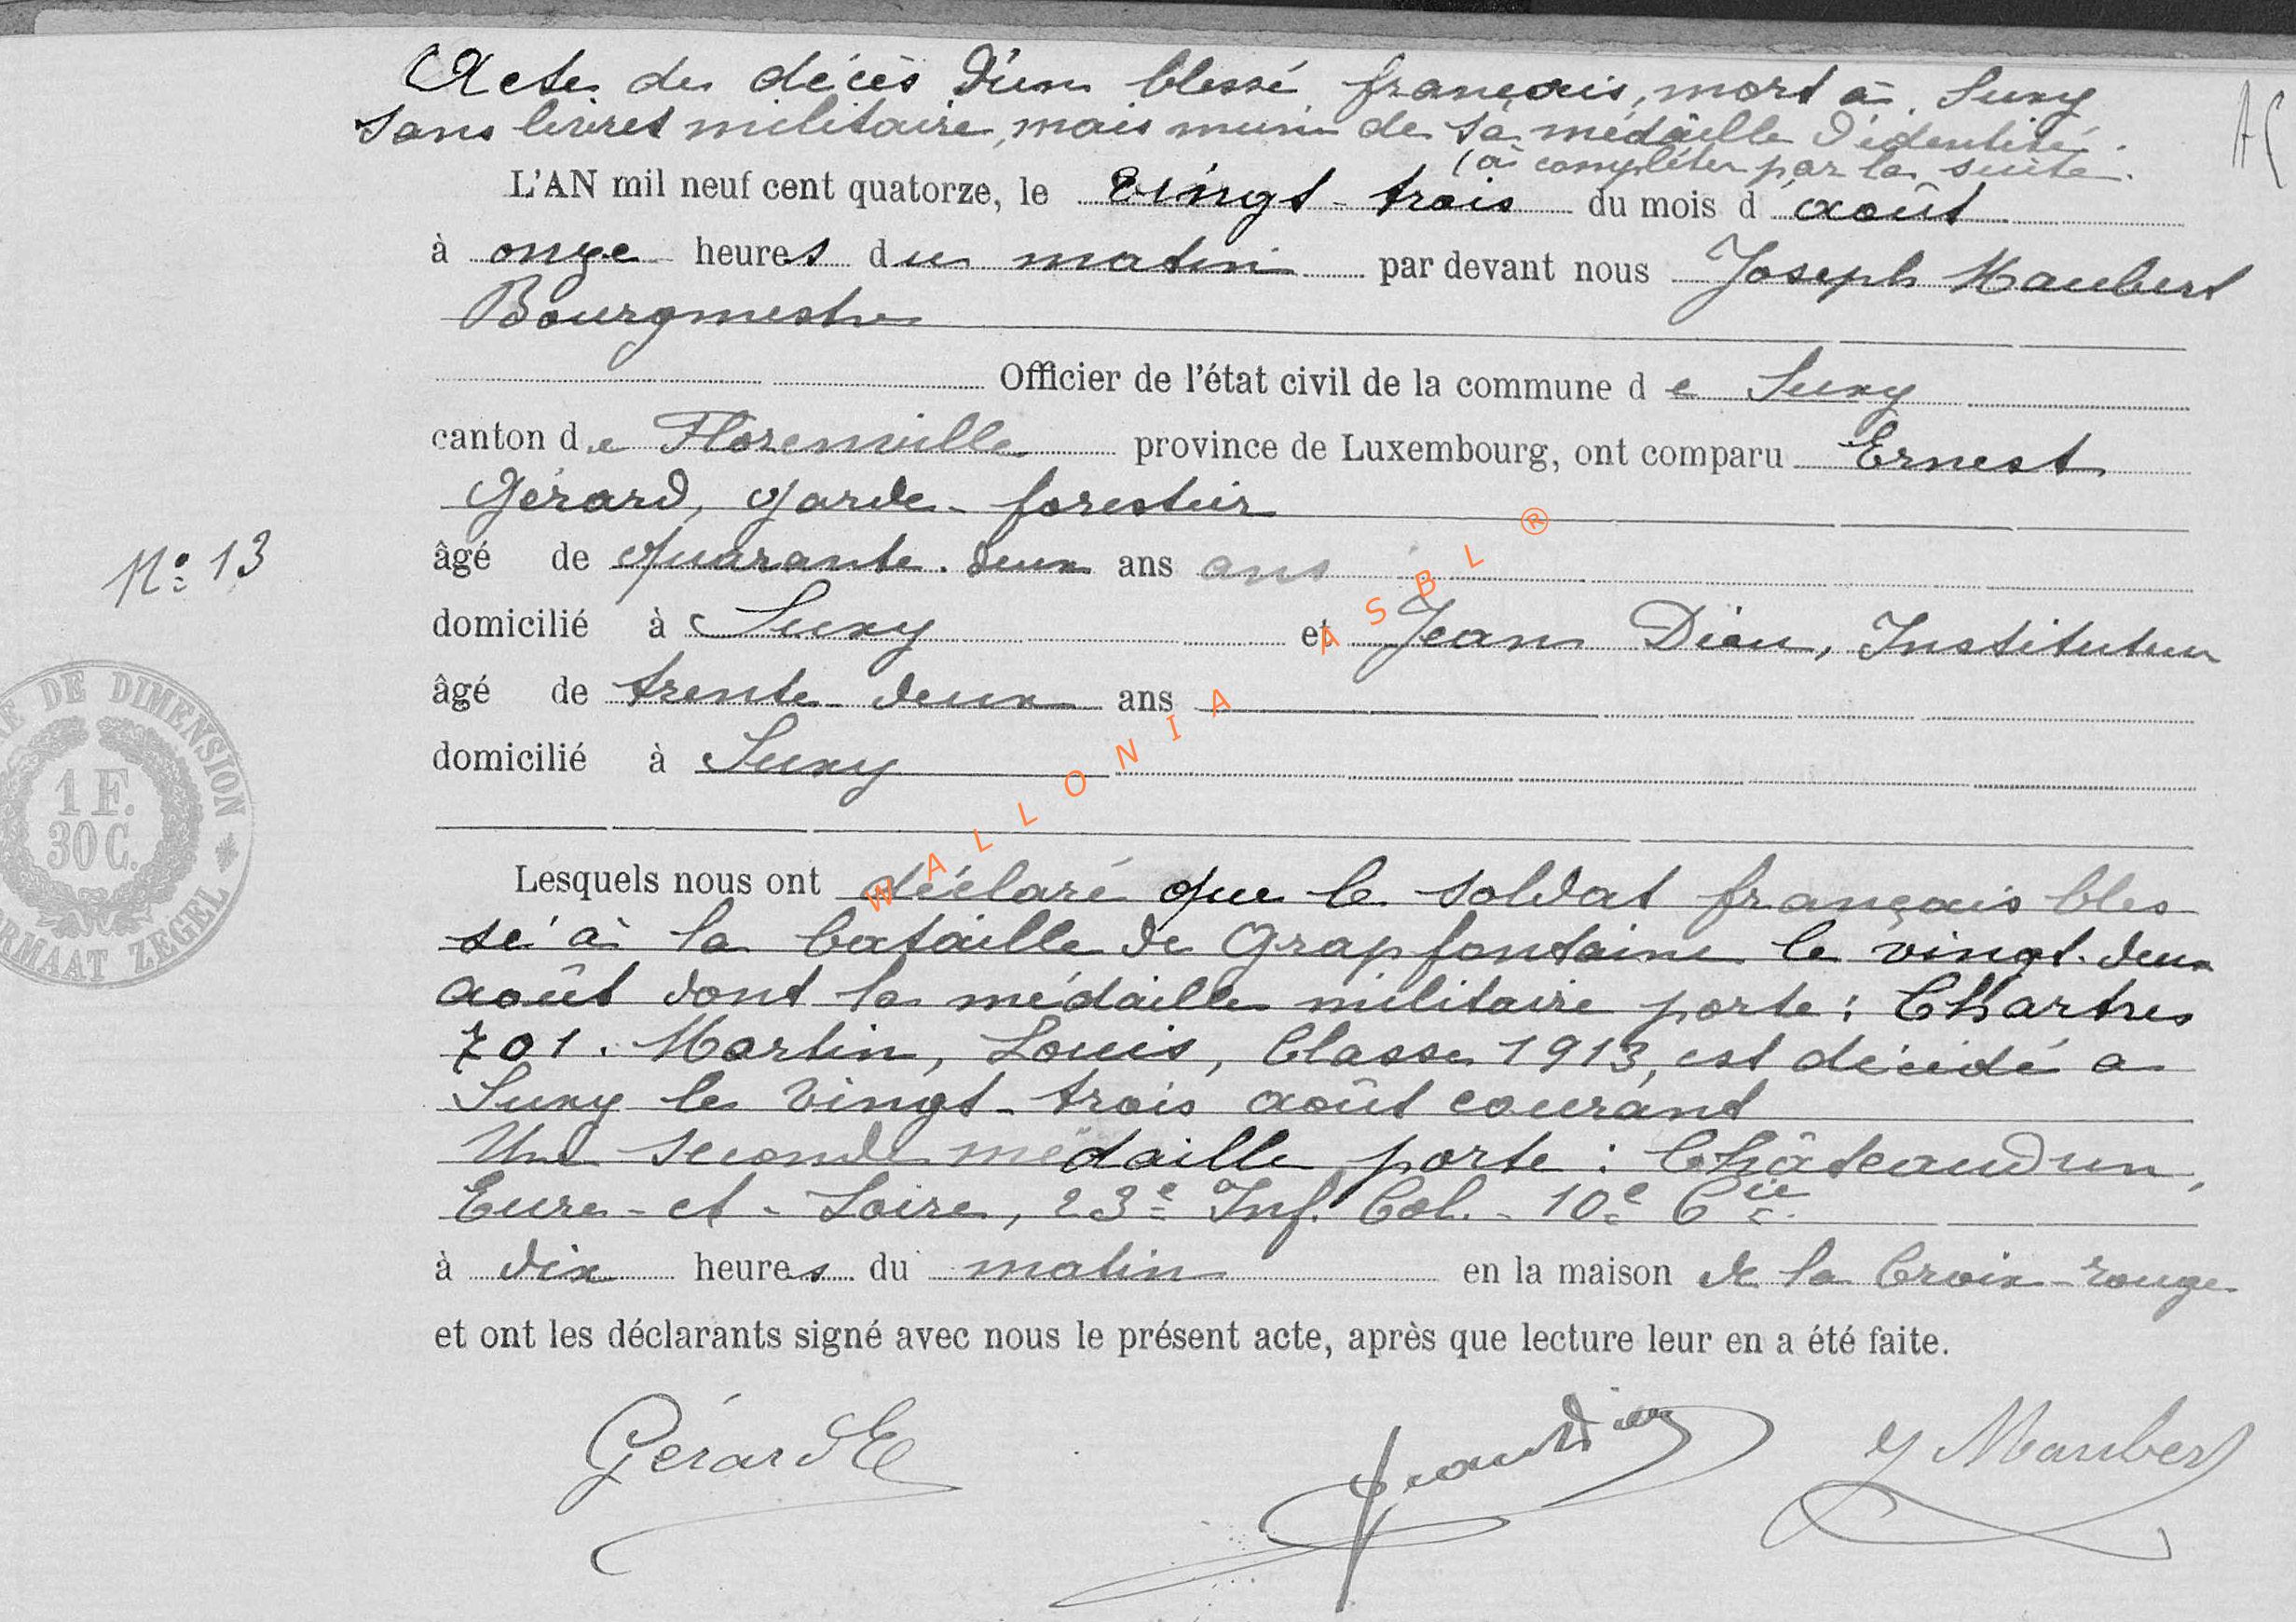 Acte de décès d'un blessé français, mort à Suxy
sans livret militaire, mais muni de sa médaille d'identité.
(à compléter par la suite.
L'AN mil neuf cent quatorze, le vingt-trois du mois d'août
à onze heures du matin par devant nous Joseph Maubert
Bourgmestre
Officier de l'état civil de la commune de Suxy
canton de Florenville province de Luxembourg, ont comparu Ernest
Gérard, garde-forestier
âgé de quarante-deux ans ans
domicilié à Suxy et Jean Dieu, Instituteur
âgé de trente-deux ans
domicilié à Suxy
Lesquels nous ont déclaré que le soldat français bles
sé à la bataille de Grapfontaine le vingt-deux
août dont la médaille militaire porte : Chartres
701. Martin, Louis, Classe 1913, est décédé a
Suxy le vingt-trois août courant
Une seconde médaille porte : Châteaudun,
Eure-et-Loire, 23e Inf. Col. - 10e Cie
à dix heures du matin en la maison de la Croix-rouge
et ont les déclarants signé avec nous le présent acte, après que lecture leur en a été faite.
Gérard E
Jean Dieu
J Maubert
No 13
DE DIMENSION
1 F.
30 C.
ZEGEL
WALLONIA ASBL ®